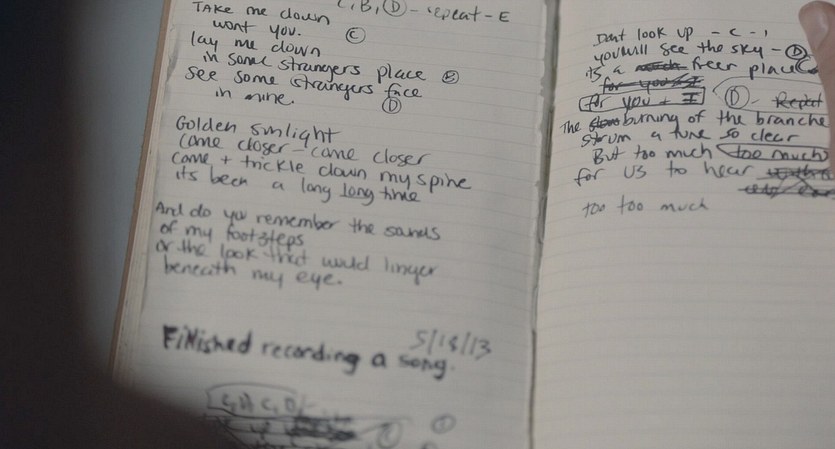 C, B, D - repeat - E
Take me down
wont you.
C
lay me down
in some strangers place
see some strangers face
D
in mine.
Golden sunlight
come closer - come closer
come + trickle down my spine
its been a long long time
And do you remember the sands
of my footsteps
or the look that would linger
beneath my eye.
5/18/13
Finished recording a song.
Dont look up - C -
you will see the sky - D
its a freer place
for you + I
for you + I D - Repeat
The burning of the branche
strum a tune so clear
But too much too much
for us to hear
too too much